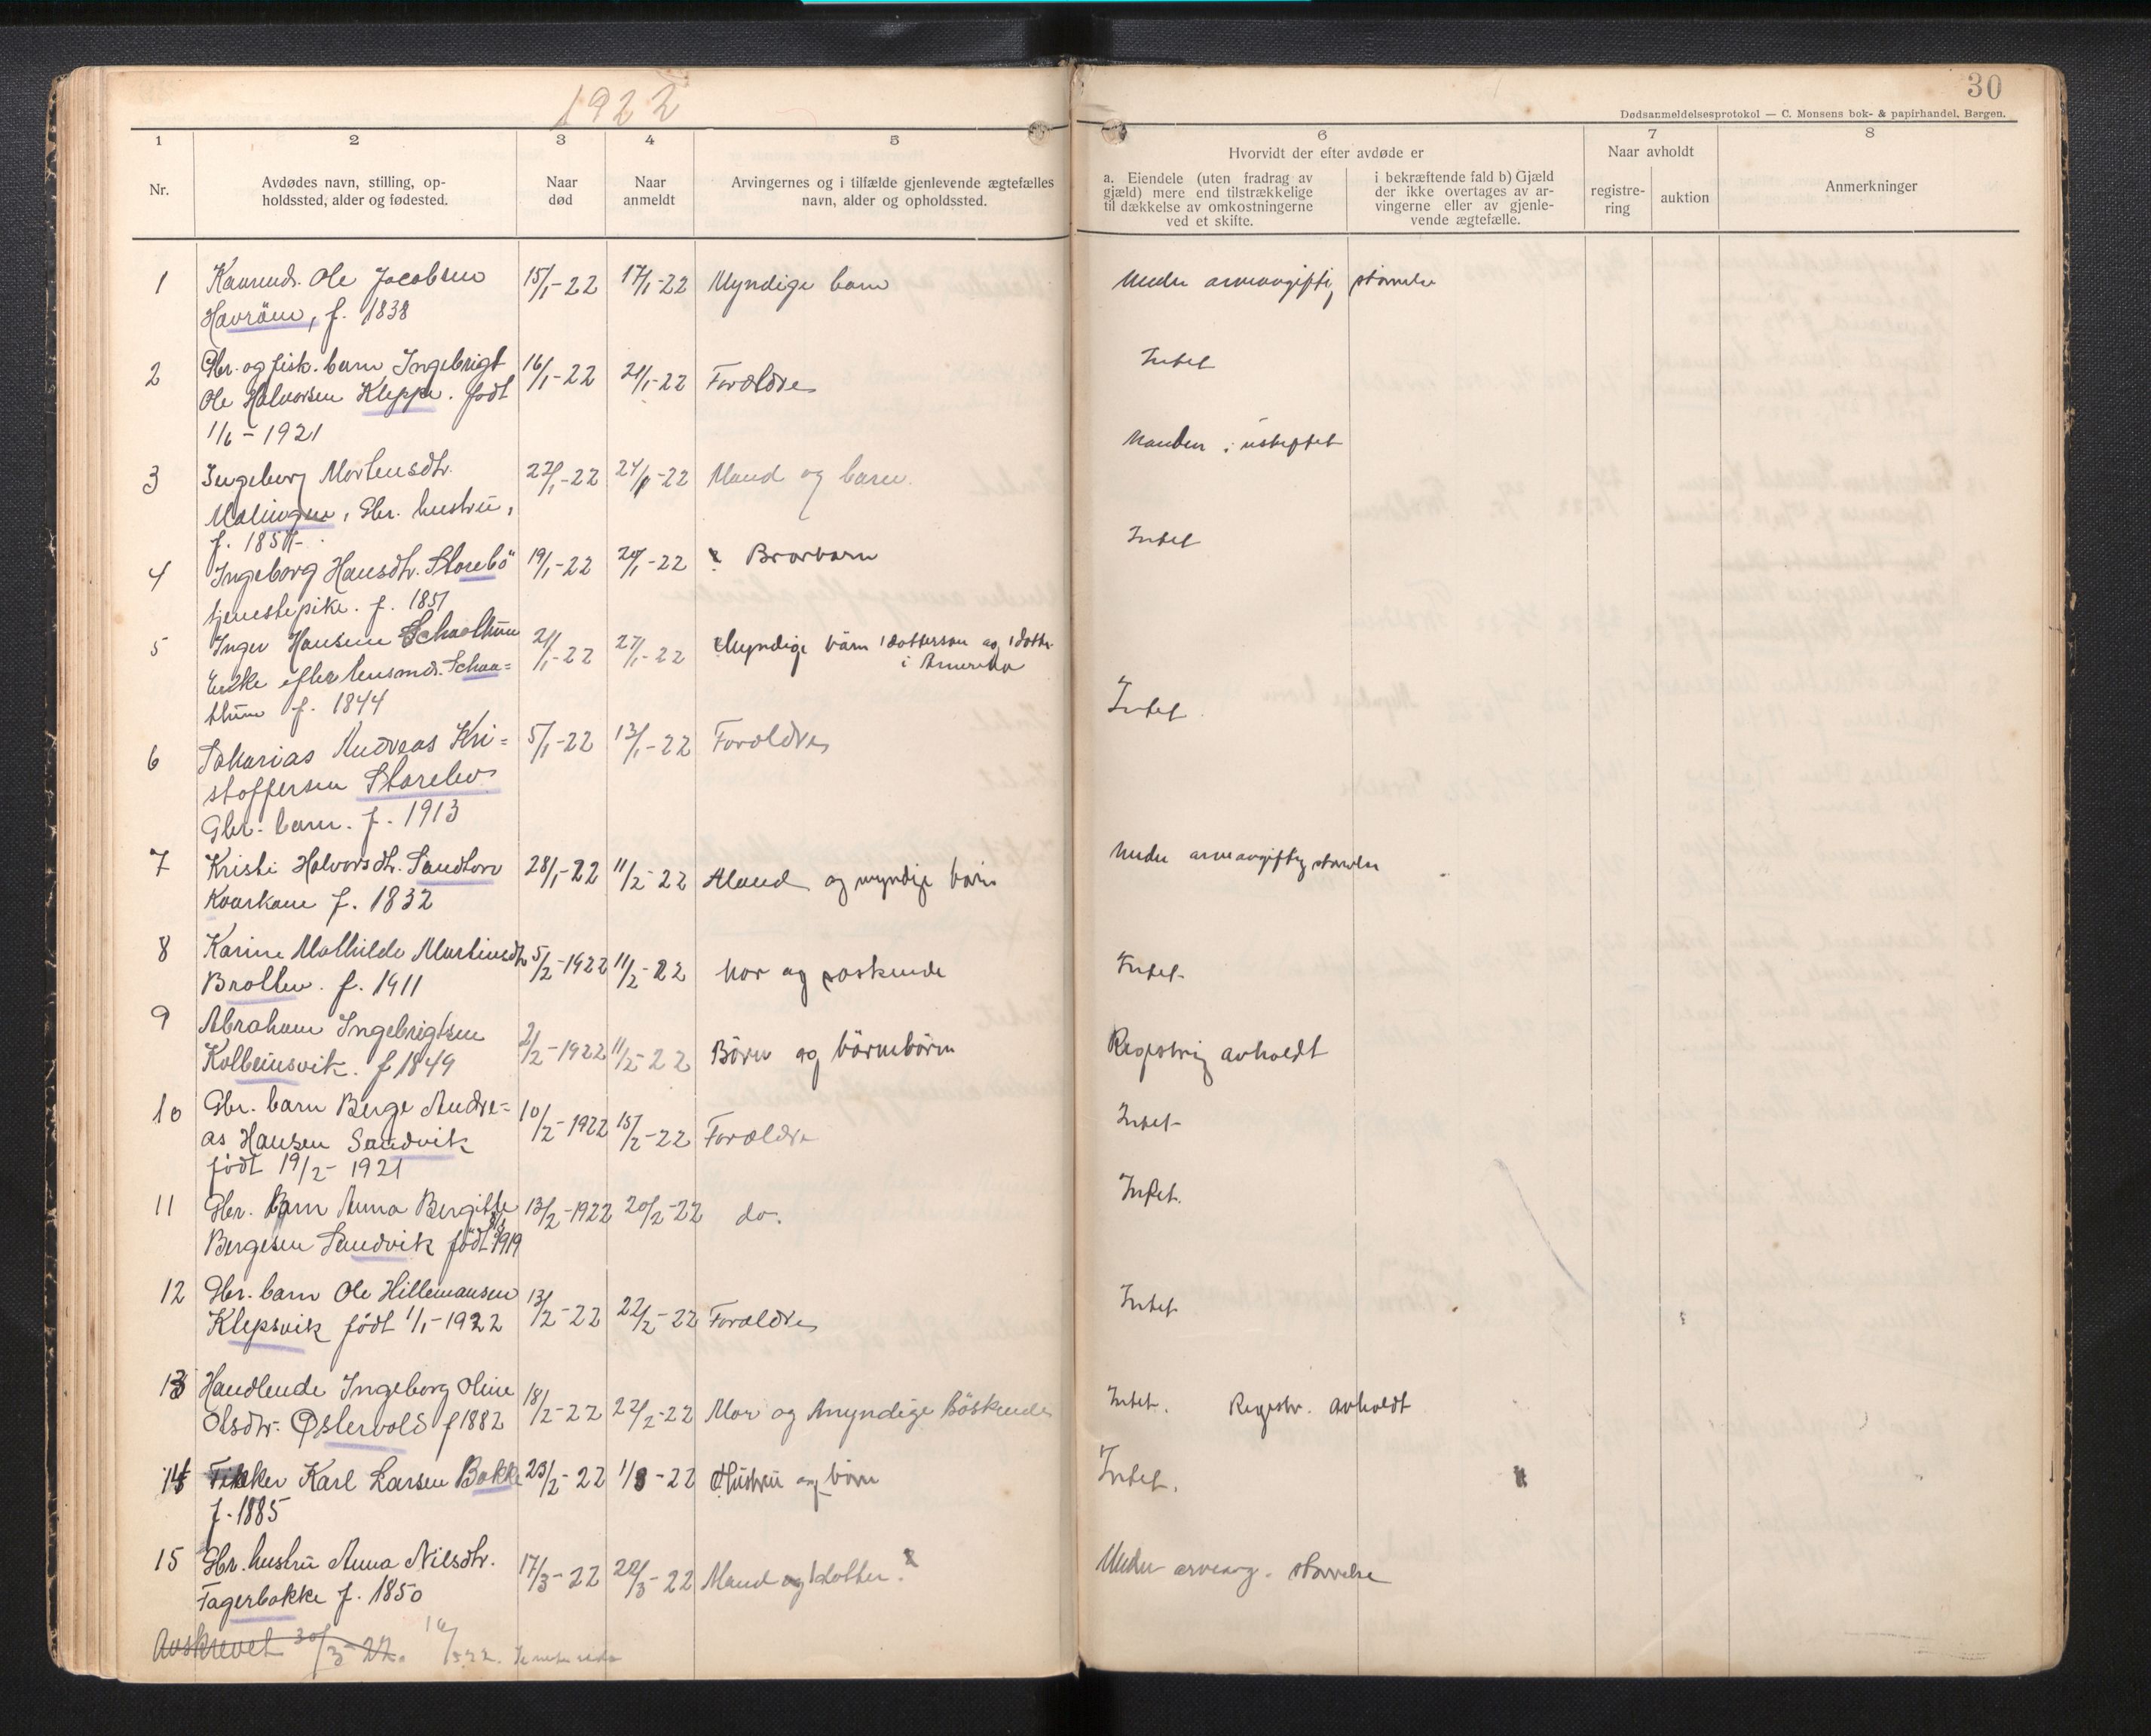 1922
30
Dødsanmeldelsesprotokol — C. Monsens bok- & papirhandel, Bergen.
1 2 3 4 5 6 7 8
Nr.
Avdødes navn, stilling, op-
holdssted, alder og fødested.
Naar
død
Naar
anmeldt
Arvingernes og i tilfælde gjenlevende ægtefælles
navn, alder og opholdssted.
Hvorvidt der efter avdøde er
a. Eiendele (uten fradrag av
gjæld) mere end tilstrækkelige
til dækkelse av omkostningerne
ved et skifte.
i bekræftende fald b) Gjæld
der ikke overtages av ar-
vingerne eller av gjenle-
vende ægtefælle.
Naar avholdt
registre-
ring
auktion
Anmerkninger
1 Kaarmd. Ole Jacobsen 15/1-22 17/1-22 Myndige barn Under arveavgiftig størrelse
Havröen, f. 1838
2 Gbr. og fisk. barn Ingebrigt 16/1-22 21/1-22 Forældre Intet
Ole Halvorsen Kleppe. födt
1/6-1921
3 Ingeborg Mortensdtr. 22/1-22 24/1-22 Mand og barn. Manden i uskiftet
Malingen, Gbr. hustru,
f. 185
4 Ingeborg Hansdtr. Storebö 19/1-22 20/1-22 Brorbarn Intet
tjenestepike. f. 1851
5 Inger Hansen Schaathun 21/1-22 27/1-22 Myndige börn 1 dattersøn og 1 datter
i Amerika
Enke efter husmd. Schaa=
thun f. 1844 Intet
6 Sakarias Andreas Kri= 5/1-22 13/1-22 Forældre
stoffersen Storebö
Gbr. barn. f. 1913
7 Kristi Halvorsdtr. Sandtorv 28/1-22 11/2-22 Mand og myndige börn Under arveavgiftig størrelse
Kaarkone f. 1832
8 Karine Mathilde Martinsdtr 5/2-1922 11/2-22 Mor og søskende Intet
Bratten. f. 1911
9 Abraham Ingebrigtsen 2/2-1922 11/2-22 Börn og börnebörn Registrering avholdt
Kolbeinsvik. f 1849
10 Gbr. barn Berge Andre= 10/2-1922 15/2-22 Forældre Intet
as Hansen Sandvik
födt 19/2-1921
11 Gbr. Barn Anna Bergitte 13/2-1922 20/2-22 do. Intet.
Bergesen Sandvik födt 1919
12 Gbr. barn Ole Hillemansen 13/2-22 22/2-22 Forældre Intet
Klepsvik födt 1/1-1922
13 Handlende Ingeborg Oline 18/2-22 22/2-22 Mor og myndige Söskende Intet. Registr. avholdt
Olsdtr. Østervold f 1882
14 Fisker Karl Larsen Bakke 23/2-22 1/3-22 Hustru og börn Intet.
f. 1885
15 Gbr. hustru Anna Nilsdtr. 17/3-22 22/3-22 Mand og 1 datter. Under arveavg. størrelse
Fagerbakke f. 1850
Avskrevet 30/3-22.